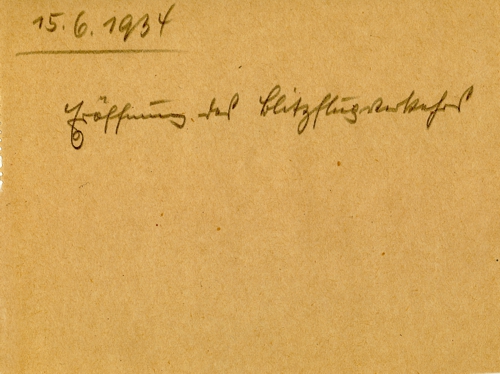 15.6.1934
Eröffnung des Blitzflugverkehrs